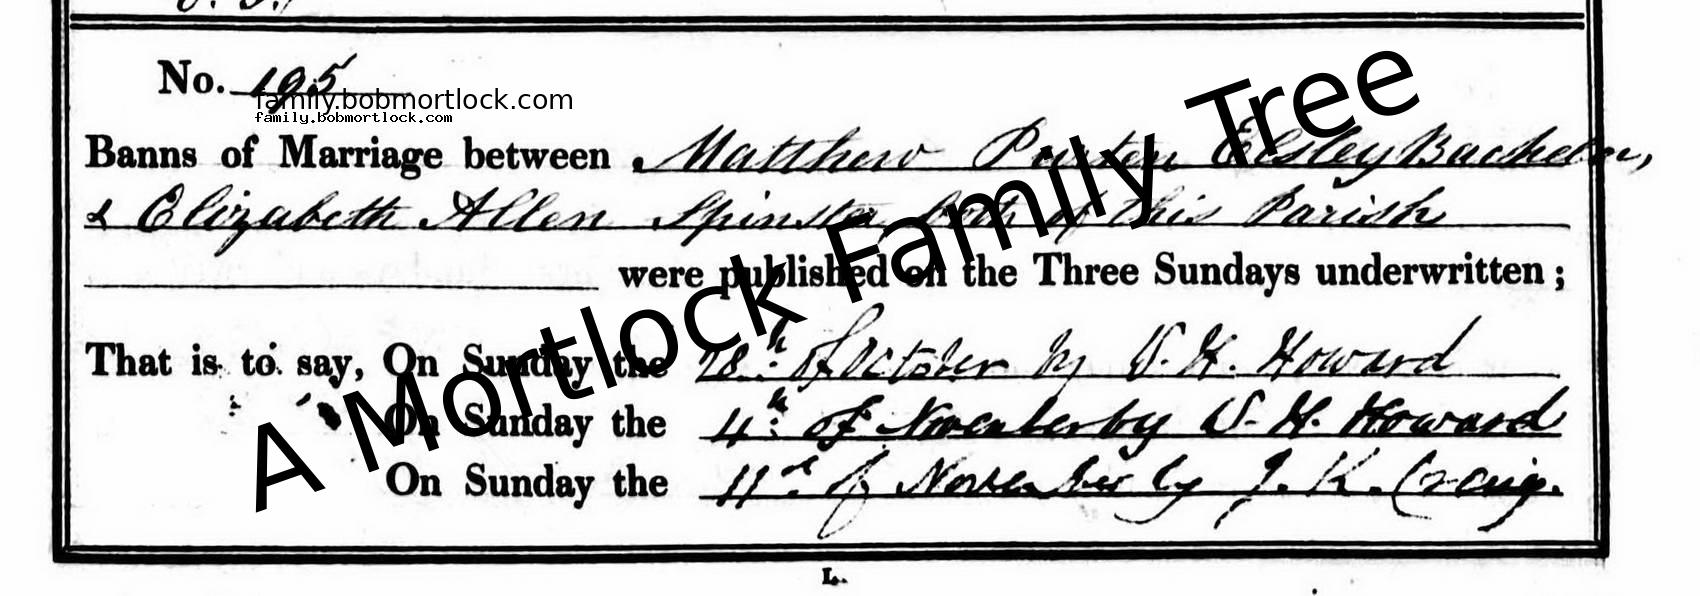 No. 195
family.bobmortlock.com
family.bobmortlock.com
Banns of Marriage between Matthew Elsley Bachelor,
& Elizabeth Allen Spinster both of this Parish
were published on the Three Sundays underwritten;
That is to say, On Sunday the 28th of October by W. H. Howard
On Sunday the 4th of November by W. H. Howard
On Sunday the 11th of November by J. K. Craig.
A Mortlock Family Tree
L.